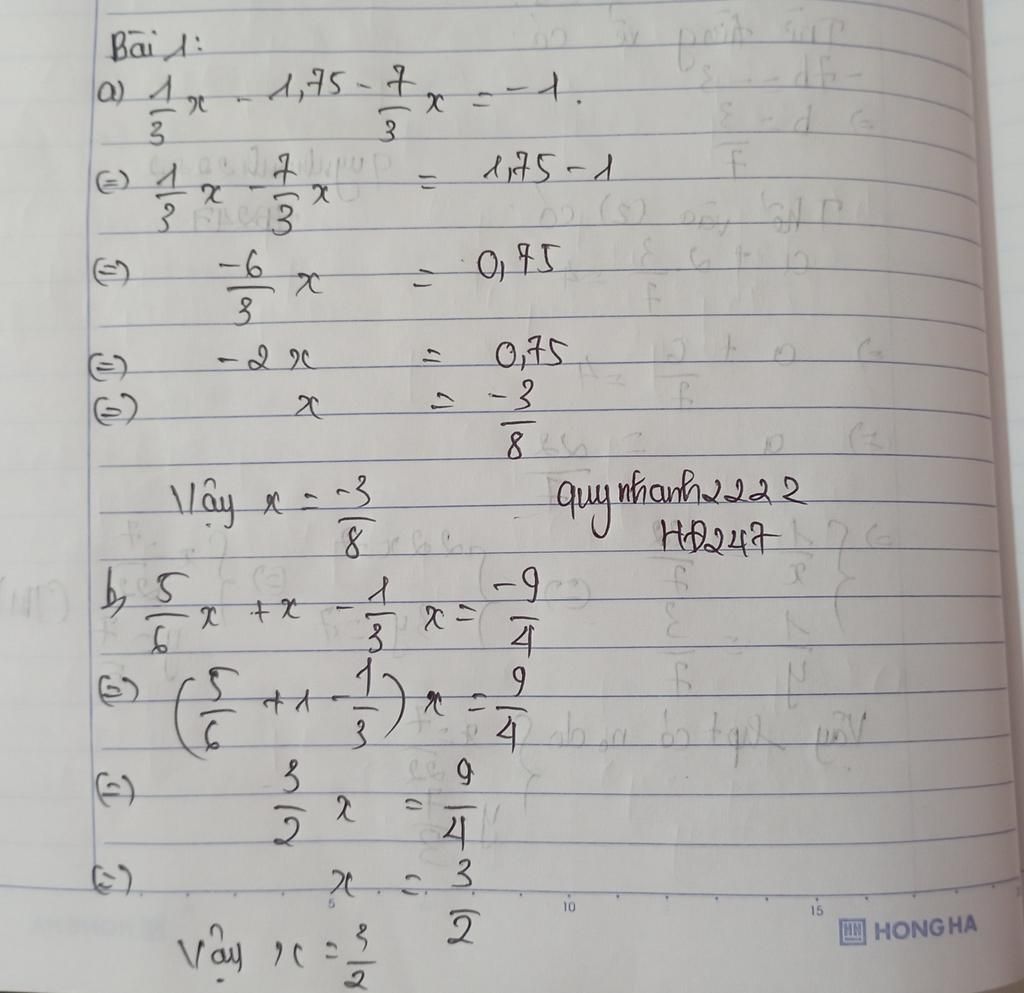 Bài 1:
a) 1/3 x - 1,75 - 7/3 x = -1.
(=) 1/3 x - 7/3 x = 1,75 - 1
(=) -6/3 x = 0,75
(=) -2x = 0,75
(=) x = -3/8
Vậy x = -3/8
quynhanh2222
HĐ247
b, 5/6 x + x - 1/3 x = -9/4
(=) (5/6 + 1 - 1/3) x = 9/4
(=) 3/2 x = 9/4
(=) x = 3/2
Vậy x = 3/2
5 10 15
HN HONG HA